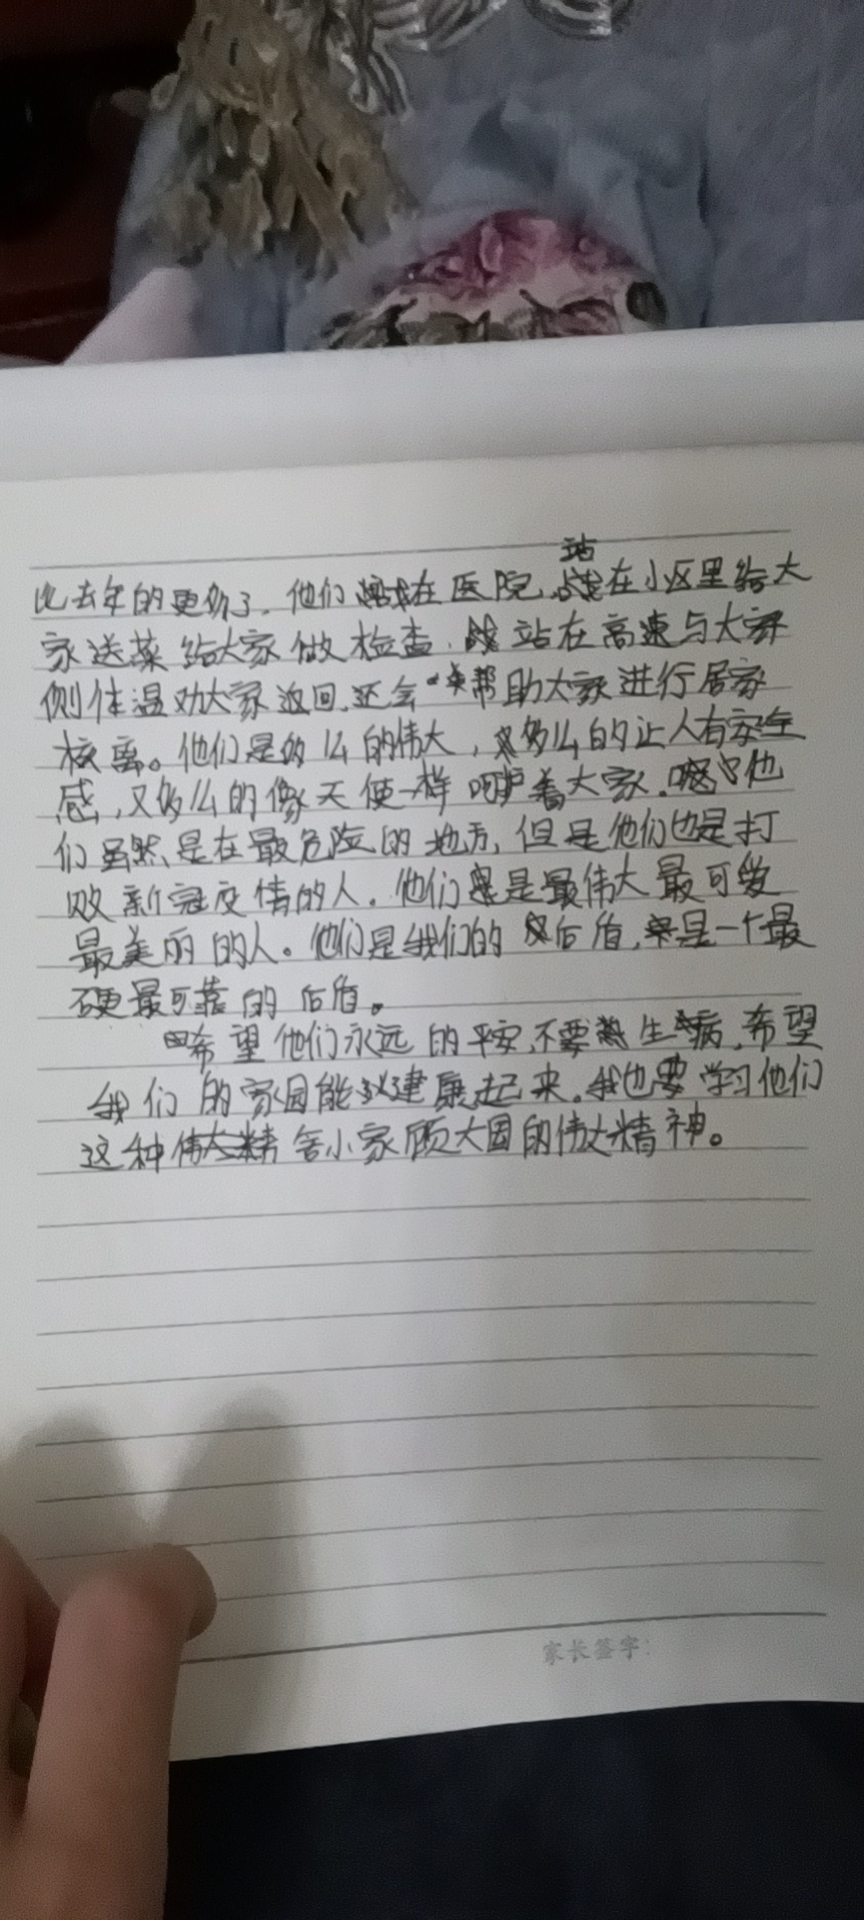 比去年的更多了。他们站在医院,站在小区里给大
家送菜给大家做检查,站在高速与大家
侧体温劝大家返回,还会帮助大家进行居家
核离。他们是多么的伟大,多么的让人有安全
感,又多么的像天使一样呵护着大家。他
们虽然是在最危险的地方,但是他们也是打
败新冠疫情的人。他们是最伟大最可爱
最美丽的人。他们是我们的后盾,是一个最
硬最可靠的后盾。
希望他们永远的平安,不要生病,希望
我们的家园能建康起来。我也要学习他们
这种舍小家顾大国的伟大精神。
家长签字: